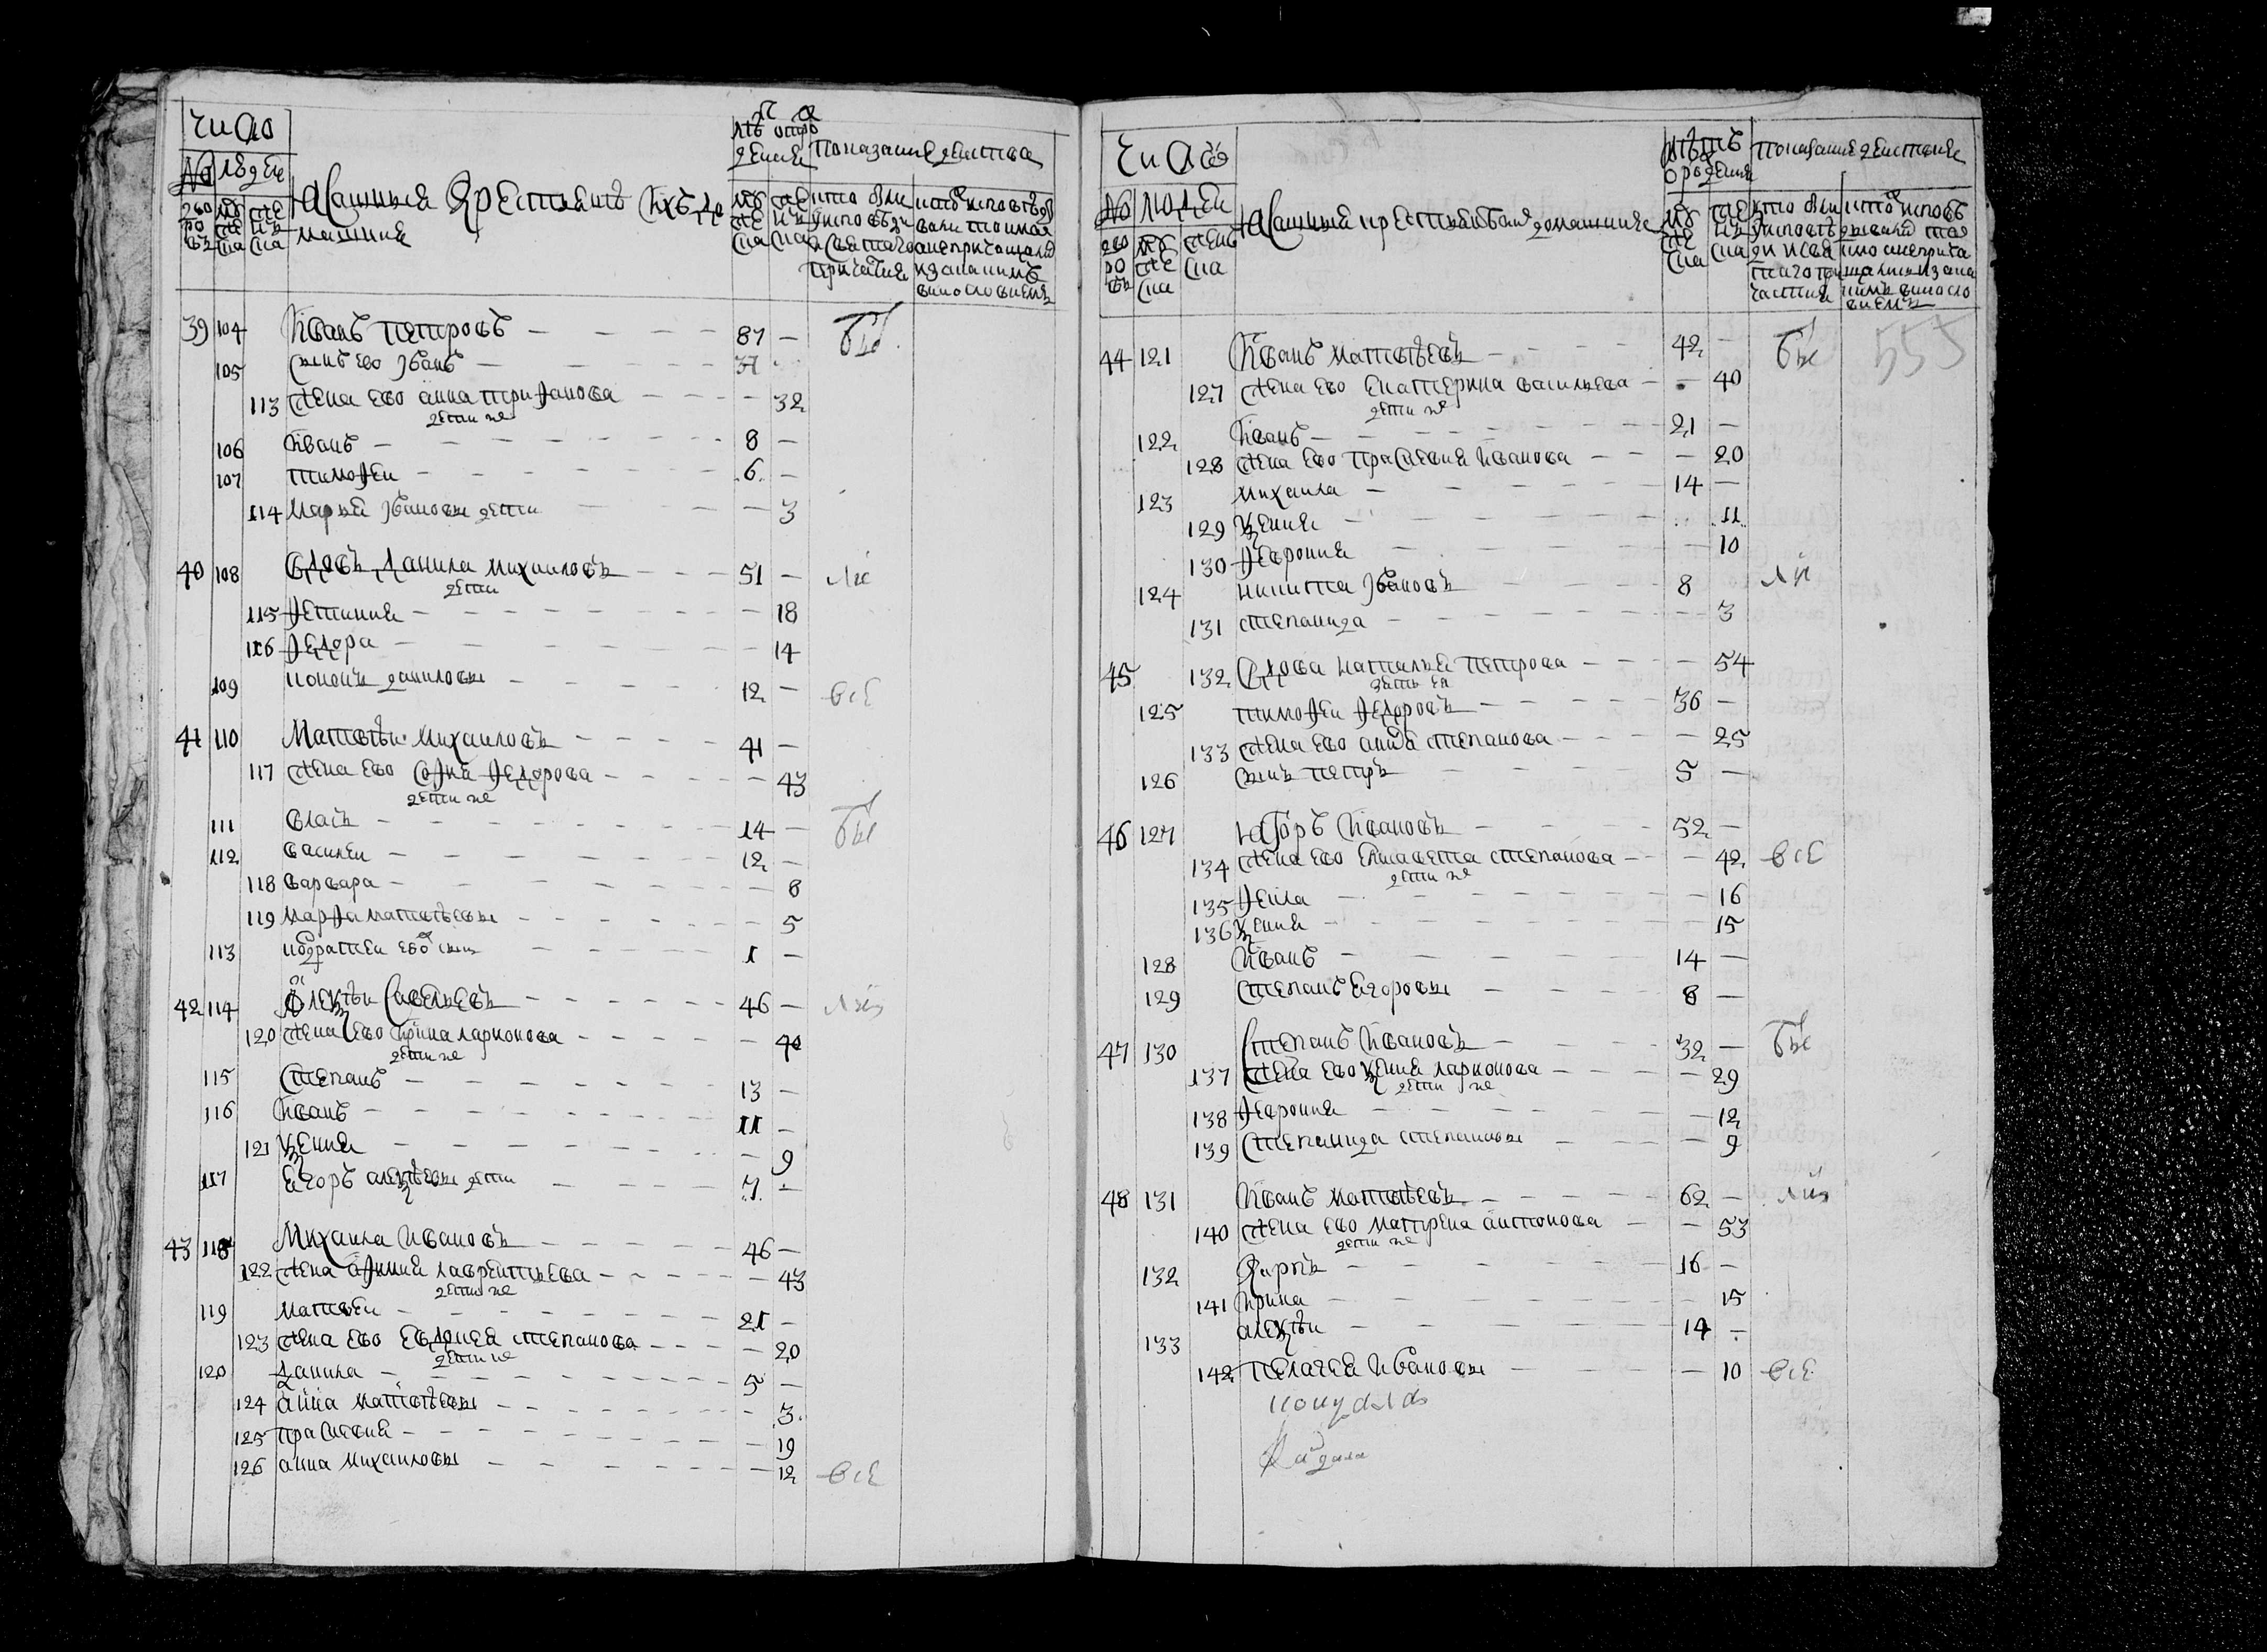 число
№ людеи
дво ров муже ска женска
крестьянѣ ихъ до
машния
лѣ от ро
ждения
муже ска женска
Показание действа
кто были
у исповѣди
и святаго
причастия
39 104 Иванъ Петровъ — 87 — бы
105 сынъ ево Иванъ — 37
113 жена ево Анна Трифанова — 32
дети же
106 Иванъ — 8 —
107 Тимофеи — 6 —
114 Марья Ивановы дети — 3
40 108 вдовъ Данила Михаиловъ — 51 —
дети
115 Фетиния — 18
116 Федора — 14
109 Кононъ Даниловы — 12 — все
41 110 Матвѣи Михаиловъ — 41 —
117 жена ево Софья Федорова — 43
дети же
111 Власъ — 14 — бы
112 Василеи — 12 —
118 Варвара — 8
119 Марфа Матвѣевы — 5
113 1 —
42 114 Алексѣи Савельевъ — 46 —
120 жена ево Ирина Ларионова — 40
дети же
115 Степанъ — 13 —
116 Иванъ — 11 —
121 Ксения — 9
117 Егоръ Алексѣевы дети — 7 —
43 118 Михаила Ивановъ — 46 —
122 жена Афимия Лаврентьева — 43
дети же
119 Матвеи — 21 —
123 жена ево Евдокея Степанова — 20
дети же
120 Данила — 5 —
124 Анна Матвѣевы — 3
125 Прасковия — 19
126 Анна Михаиловы — 12 все
число
№ людеи
дво ров муже ска женска
крестьянѣ домашние
лѣтъ
от рождения
муже ска женска
Показание действия
кто были
44 121 Иванъ Матвѣевъ — 42 — бы 555
127 жена ево Екатерина Васильева — 40
дети же
122 Иванъ — 21 —
128 жена ево Прасковия Иванова — 20
123 Михаила — 14 —
129 Ксения — 11
130 Феврония — 10
124 Никита Ивановъ — 8
131 Степанида — 3
45 132 вдова Наталья Петрова — 54
зеть ея
125 Тимофеи Федоровъ — 36 —
133 жена ево Анна Степанова — 25
126 сынъ Петръ — 5 —
46 127 Егоръ Ивановъ — 52 —
134 жена ево Елисавета Степанова — 42 все
дети же
135 Фекла — 16
136 Ксения — 15
128 Иванъ — 14 —
129 Степанъ Егоровы — 8 —
47 130 Степанъ Ивановъ — 32 — бы
137 жена ево Ксения Ларионова — 29
дети же
138 Феврония — 12
139 Степанида Степановы — 9
48 131 Иванъ Матвѣевъ — 62 —
140 жена ево Матрена Антонова — 53
дети же
132 Карпъ — 16 —
141 Ирина — 15
133 Алексѣи — 14 —
142 Пелагея Ивановы — 10 все